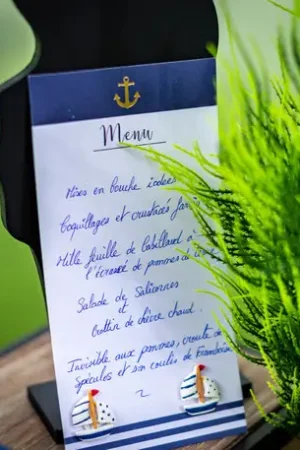 Menu
Mises en bouche iodées
Coquillages et crustacés farcis
Mille feuille de Cabillaud à
l'écrasé de pommes de
Salade de Salicornes
et
Crottin de chèvre chaud.
Invisible aux pommes, croute de
Spéculos et son coulis de Framboise